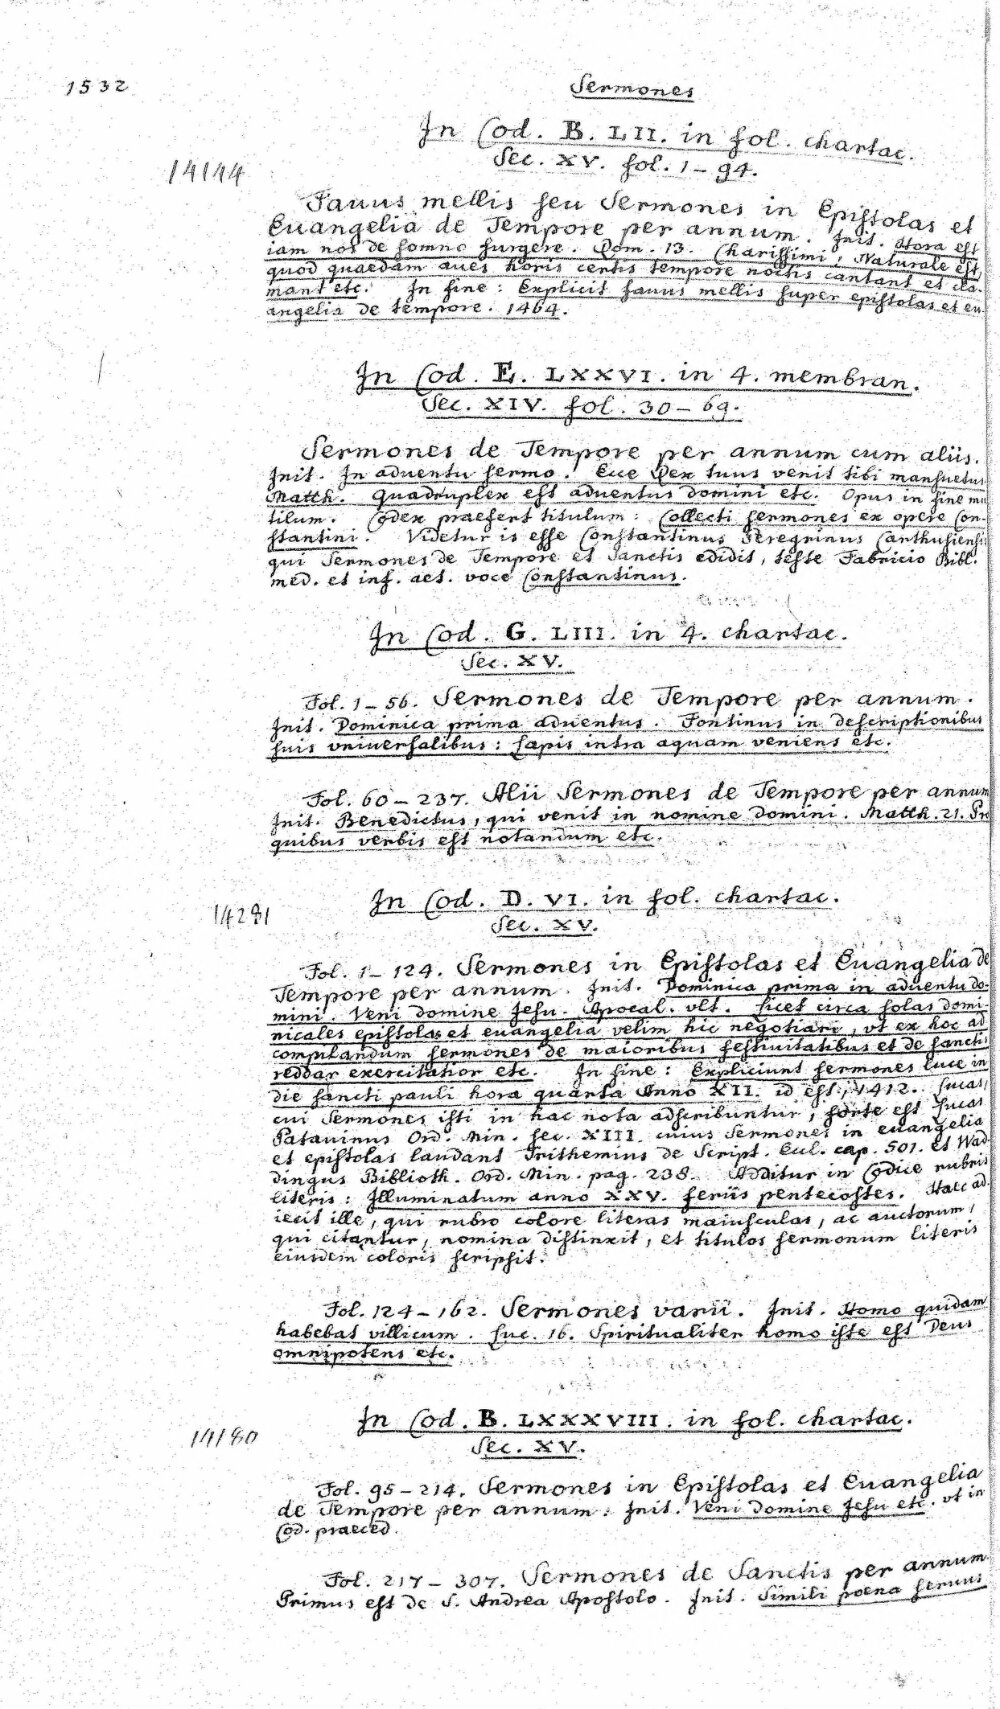 1532
Sermones
In Cod. B. LII. in fol. chartac.
Sec. XV. fol. 1–94.
14144
Fauus mellis seu Sermones in Epistolas et
Euangelia de Tempore per annum. Init. Hora est
iam nos de somno surgere. Rom. 13. Charissimi, Naturale est,
quod quaedam aues horis certis tempore noctis cantant et cla-
mant etc. In fine: Explicit fauus mellis super epistolas et eu-
angelia de tempore. 1464.
In Cod. E. LXXVI. in 4. membran.
Sec. XIV. fol. 30–69.
Sermones de Tempore per annum cum aliis.
Init. In aduentu sermo. Ecce Rex tuus venit tibi mansuetus
Matth. Quadruplex est aduentus domini etc. Opus in fine mu
tilum. Codex praefert titulum: Collecti sermones ex opere Con-
stantini. Videtur is esse Constantinus Peregrinus Carthusiensis
qui Sermones de Tempore et Sanctis edidit, teste Fabricio Bibl.
med. et inf. aet. voce Constantinus.
In Cod. G. LIII. in 4. chartac.
Sec. XV.
Fol. 1–56. Sermones de Tempore per annum.
Init. Dominica prima aduentus. Fontinus in descriptionibus
suis vniuersalibus: Lapis intra aquam veniens etc.
Fol. 60–237. Alii Sermones de Tempore per annum
Init. Benedictus, qui venit in nomine domini. Matth. 21. Pro
quibus verbis est notandum etc.
In Cod. D. VI. in fol. chartac.
14281
Sec. XV.
Fol. 1–124. Sermones in Epistolas et Euangelia de
Tempore per annum. Init. Dominica prima in aduentu do-
mini. Veni domine Jesu. Apocal. vlt. Licet circa solas domi
nicales epistolas et euangelia velim hic negotiari, vt ex hoc ad
compilandum sermones de maioribus festiuitatibus et de sanctis
reddar exercitatior etc. In fine: Expliciunt sermones Luce in
die sancti pauli hora quarta Anno XII. id est, 1412. Lucas,
cui Sermones isti in hac nota adscribuntur, forte est Lucas
Patauinus Ord. Min. sec. XIII. cuius Sermones in euangelia
et epistolas laudant Trithemius de Script. Eccl. cap. 501. et Wad
dingus Biblioth. Ord. Min. pag. 238. Additur in Codice rubris
literis: Illuminatum anno XXV. feriis pentecostes. Haec ad
iecit ille, qui rubro colore literas maiusculas, ac auctorum,
qui citantur, nomina distinxit, et titulos sermonum literis
eiusdem coloris scripsit.
Fol. 124–162. Sermones varii. Init. Homo quidam
habebat villicum. Luc. 16. Spiritualiter homo iste est Deus
omnipotens etc.
In Cod. B. LXXXVIII. in fol. chartac.
14180
Sec. XV.
Fol. 95–214. Sermones in Epistolas et Euangelia
de Tempore per annum. Init. Veni domine Jesu etc. vt in
Cod. praeced.
Fol. 217–307. Sermones de Sanctis per annum.
Primus est de S. Andrea Apostolo. Init. Simili poena seruus